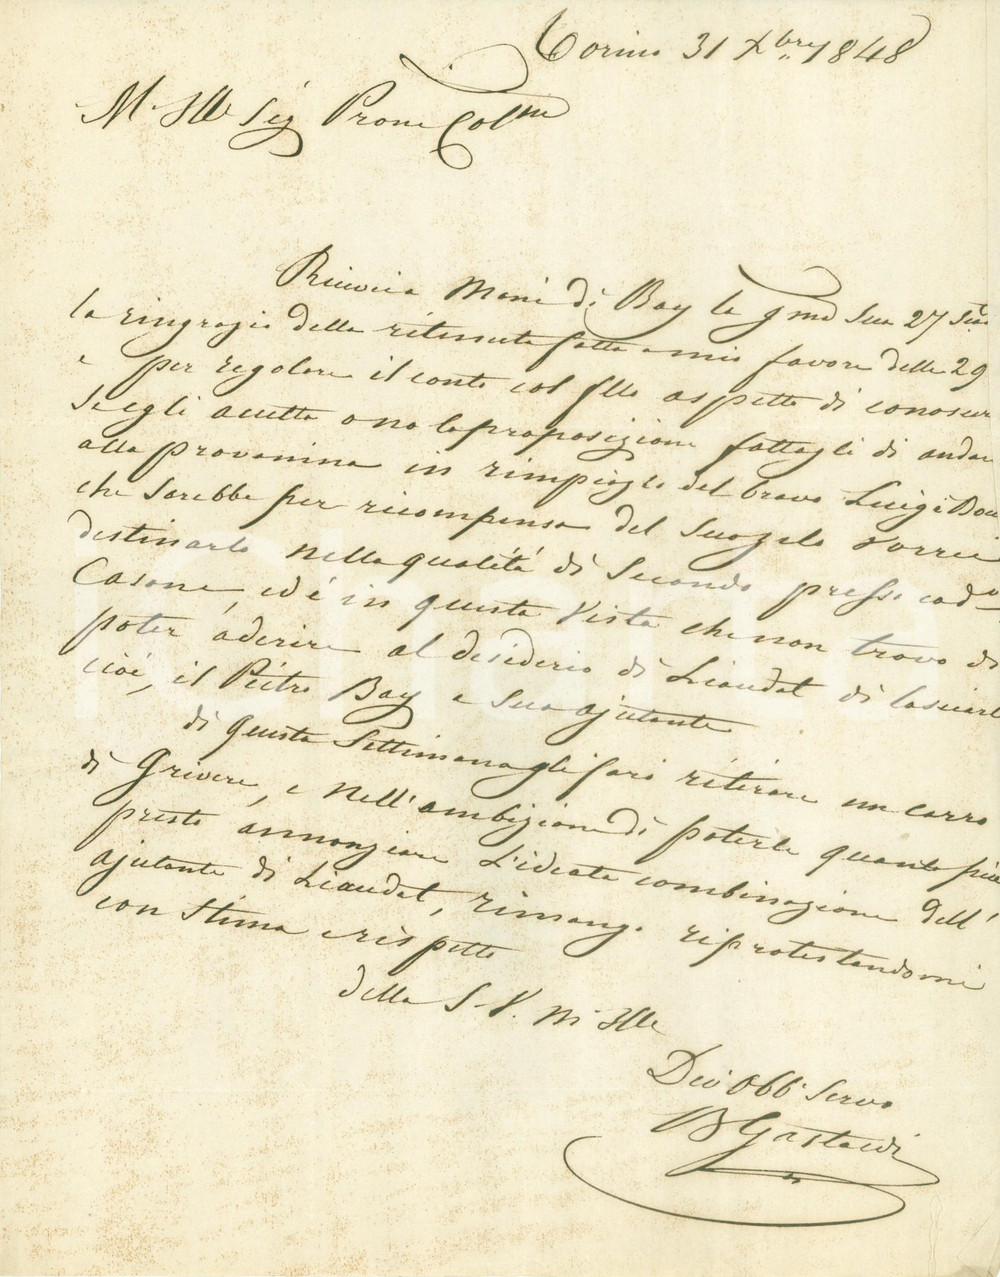 Torino 31 Xbre 1848
M. Ille Sig Prone Colmo
Ricevei a Mani di Bay la gma Sua 27 
la ringrazio della ritenuta fatta a mio favore delle 29
e per regolare il conto col sllo aspetto di conoscere
se egli accetta o no la proposizione fattagli di andare
alla provanina in rimpiazzo del bravo Luigi
che sarebbe per ricompensa del Suo zelo vorrei
destinarlo nella qualità di Secondo presso cod°
Casone, ed è in questa Vista che non trovo di
poter aderire al desiderio di Liaudet di lasciarli
cioè, il Pietro Bay e Suo ajutante
di questa Settimana gli farò ritirare un carro
di Grivere, e nell'ambizione di poterle quanto più
presto annonziare l'ideata combinazione dell'
ajutante di Liaudet, rimango riprotestandomi
con stima e rispetto
della S. V. M Ille
Dev Obb Servo
B Gastaldi